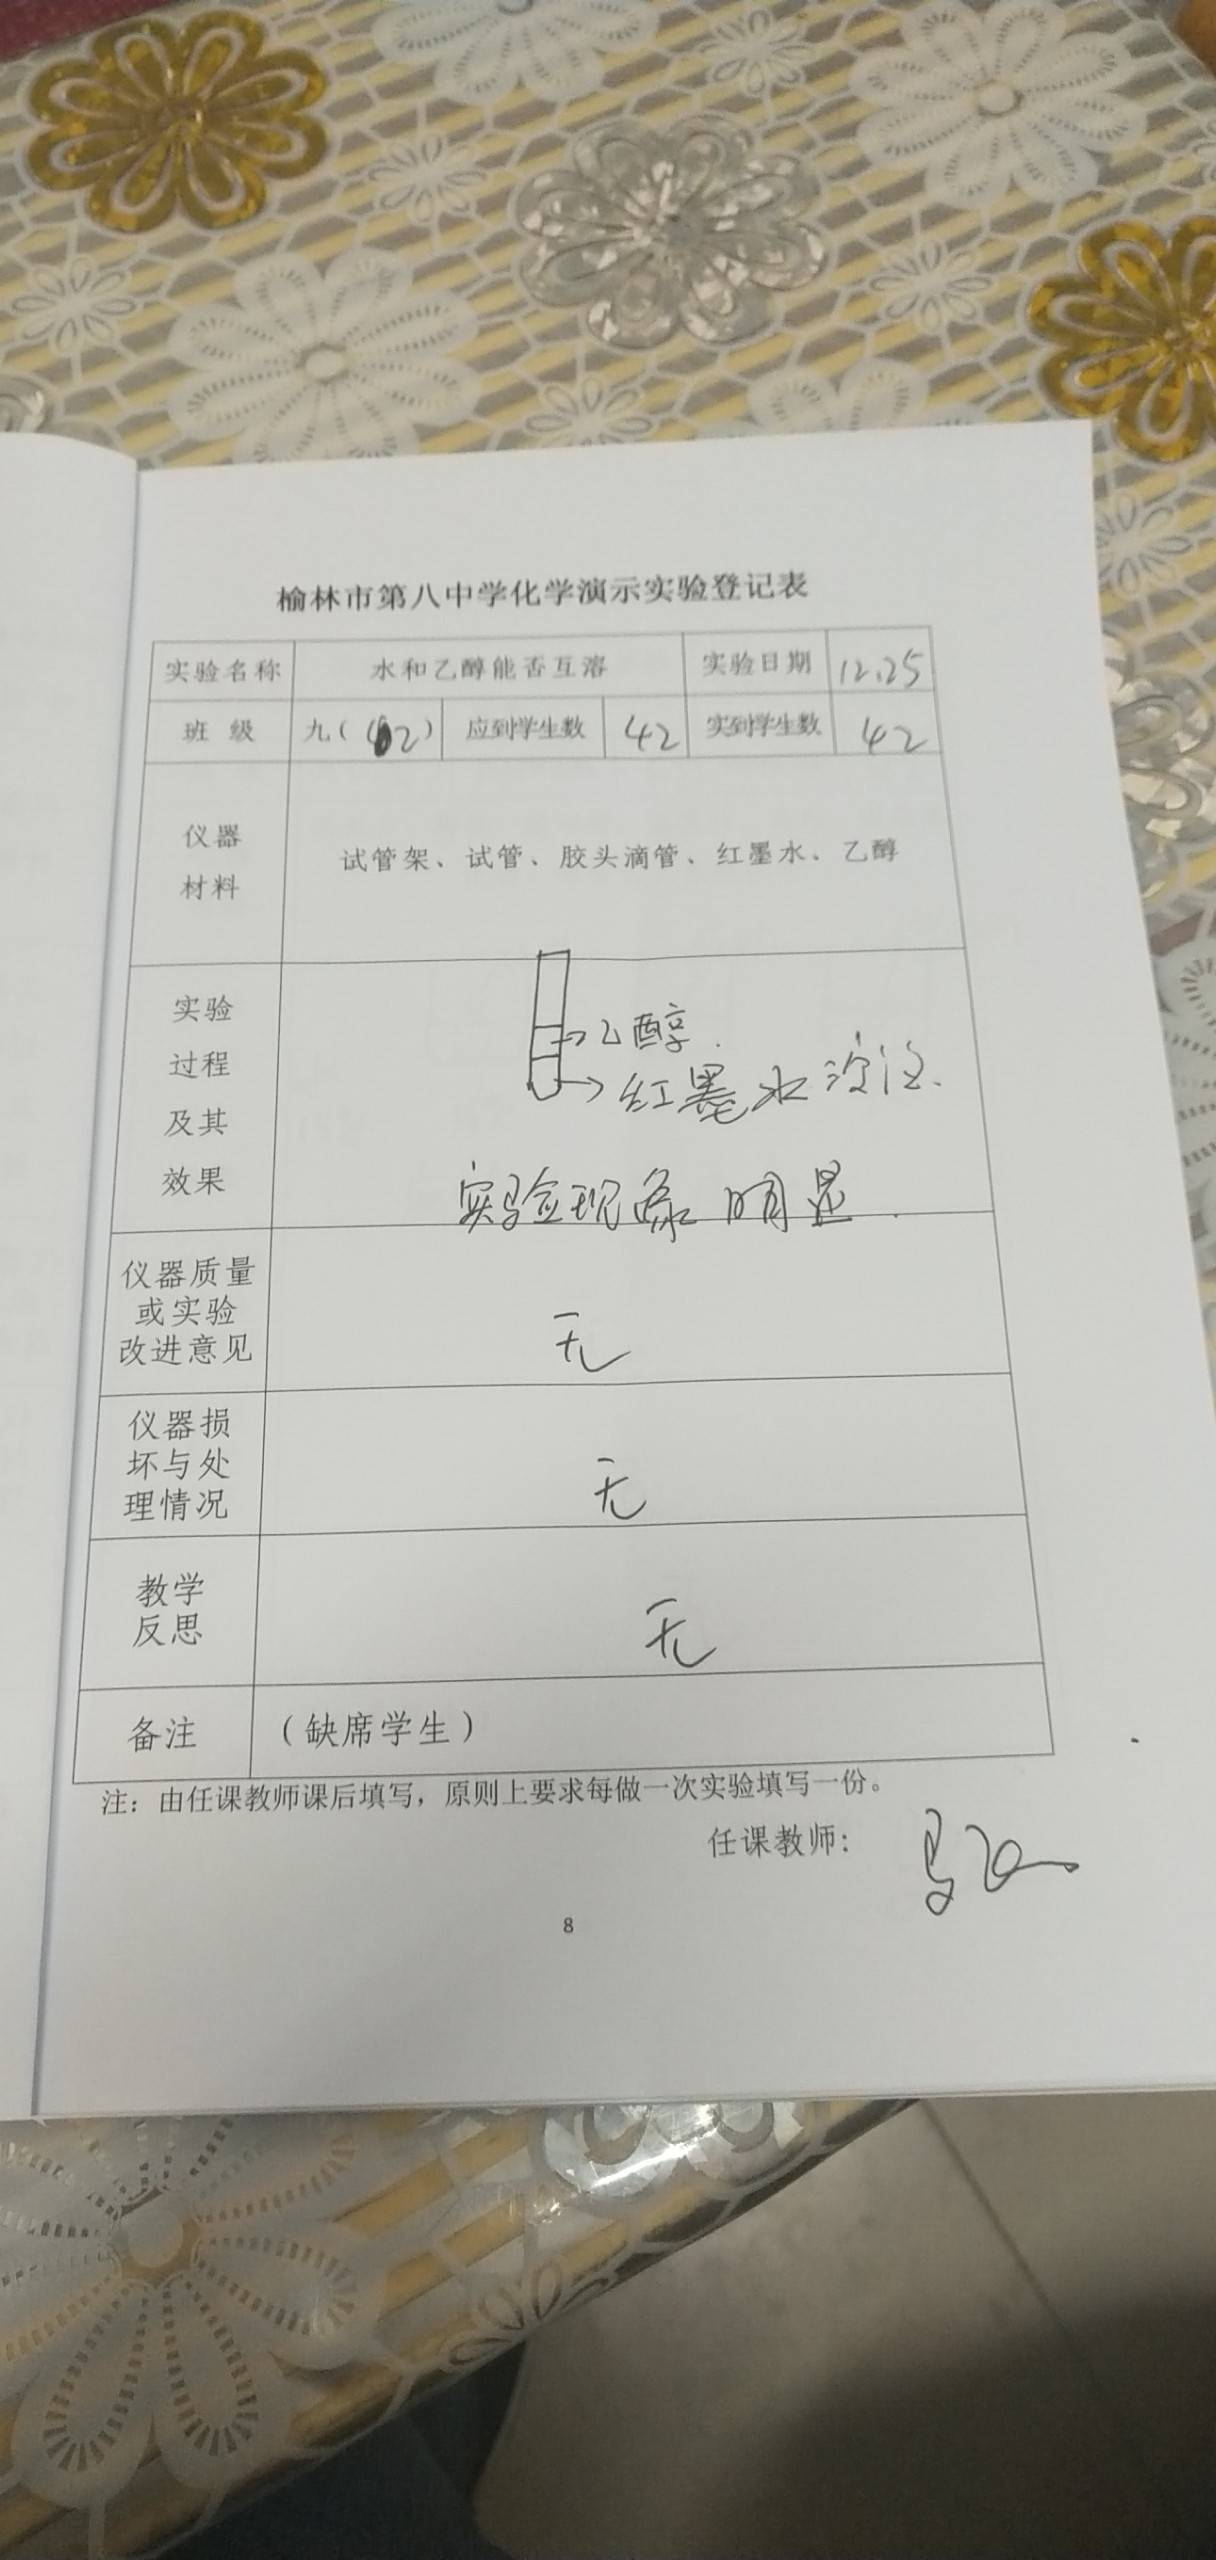 榆林市第八中学化学演示实验登记表
实验名称 水和乙醇能否互溶 实验日期 12.25
班 级 九( 2) 应到学生数 42 实到学生数 42
仪器
材料
试管架、试管、胶头滴管、红墨水、乙醇
实验
过程
及其
效果
乙醇.
红墨水
实验现象明显.
仪器质量
或实验
改进意见
无
仪器损
坏与处
理情况
无
教学
反思
无
备注 (缺席学生)
注：由任课教师课后填写，原则上要求每做一次实验填写一份。
任课教师:
8